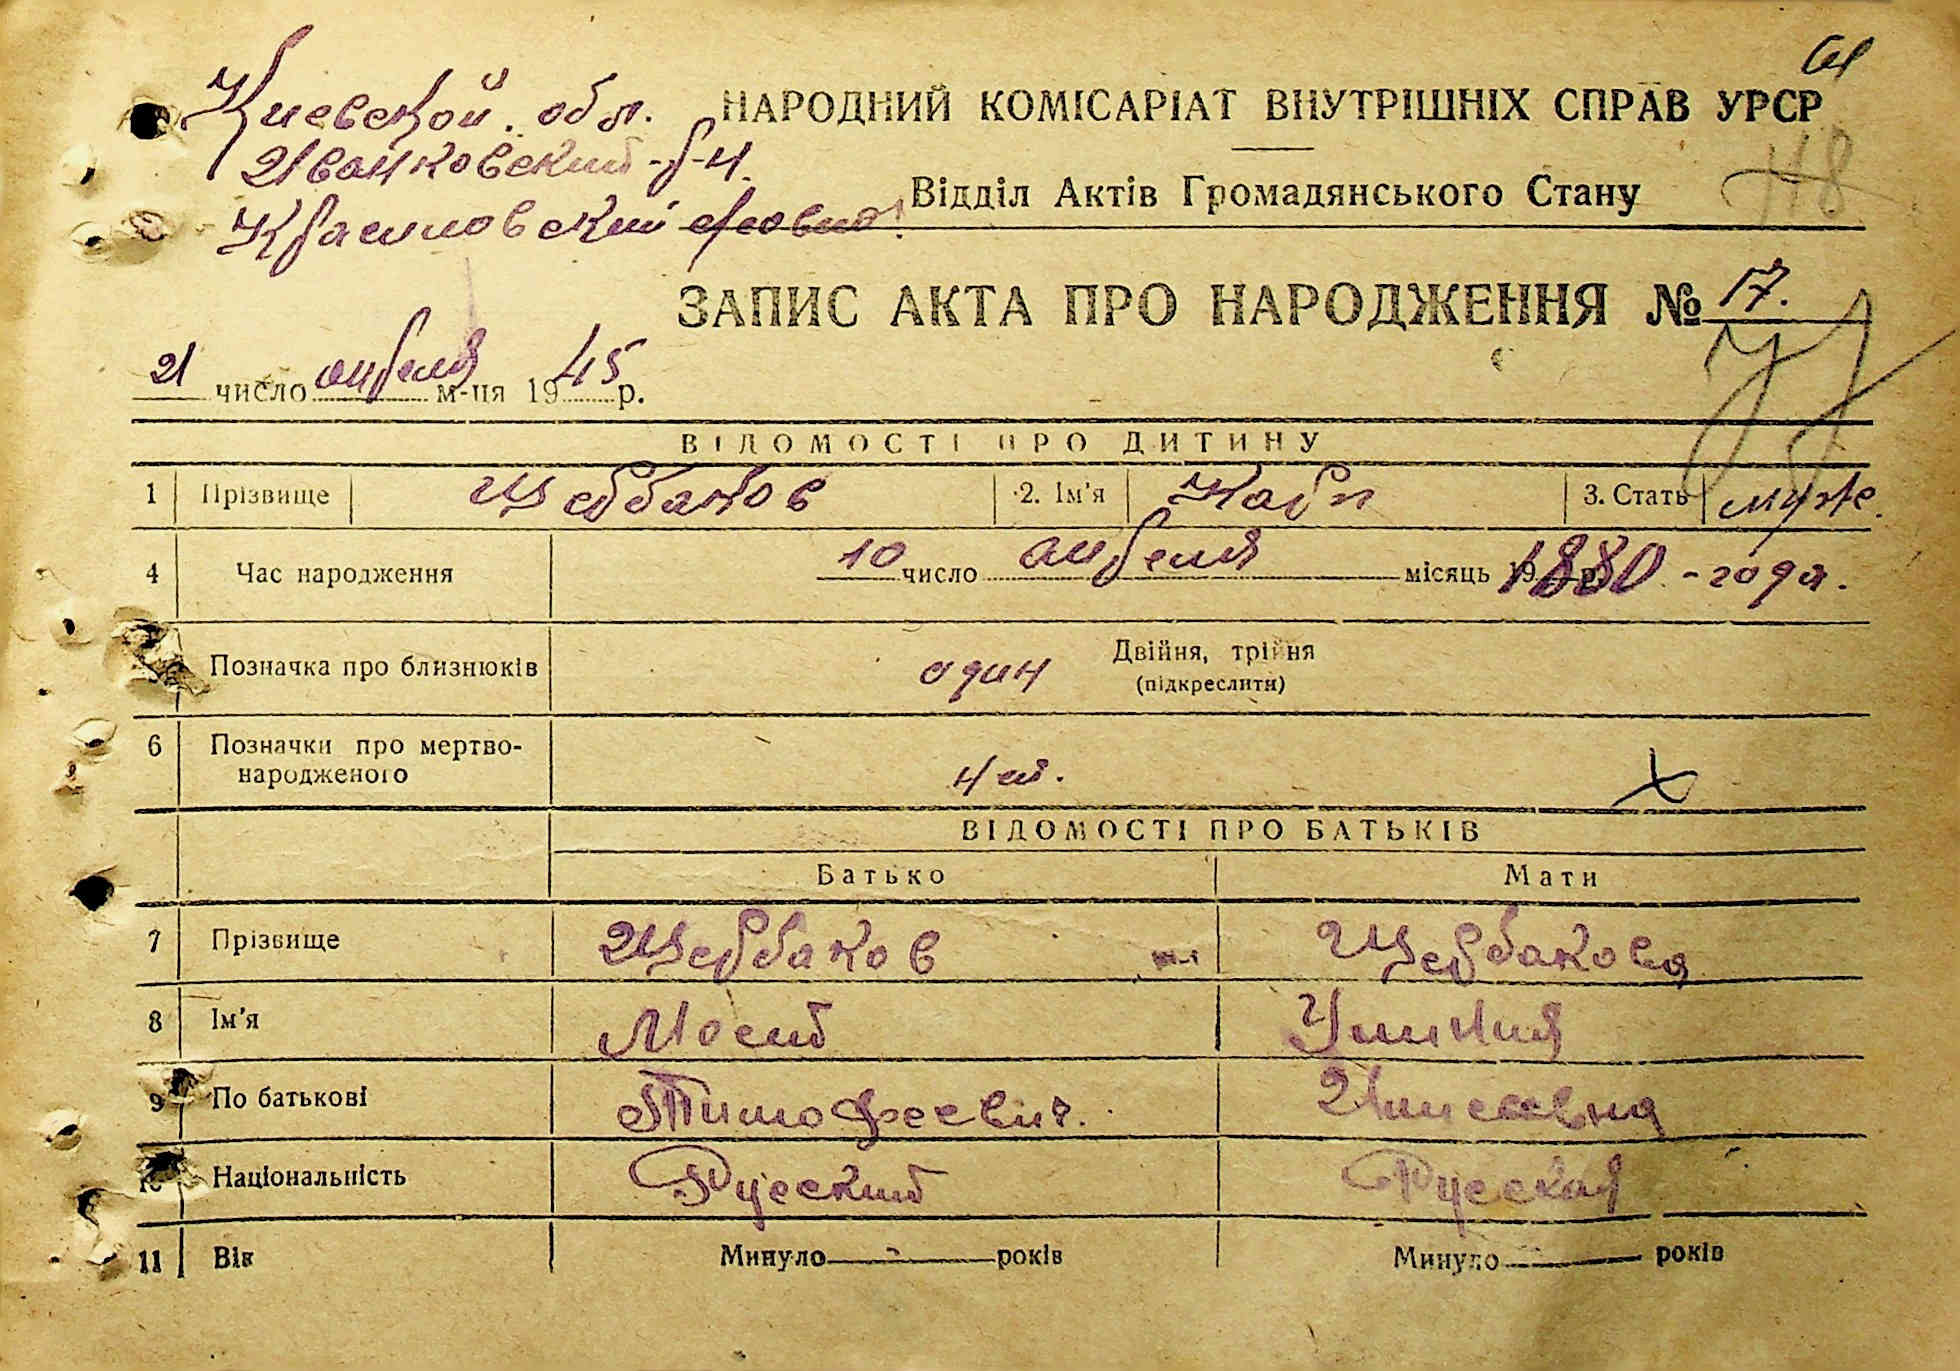 61
Киевской обл.
НАРОДНИЙ КОМІСАРІАТ ВНУТРІШНІХ СПРАВ УРСР
Иванковский р-н.
118
Відділ Актів Громадянського Стану
Красиловский с/совет
ЗАПИС АКТА ПРО НАРОДЖЕННЯ № 17.
21 число апреля м-ця 1945 р.
ВІДОМОСТІ ПРО ДИТИНУ
1 Прізвище Щербаков 2. Ім'я Карп 3. Стать муж.
4 Час народження 10 число апреля місяць 1880 - года.
Позначка про близнюків один Двійня, трійня
(підкреслити)
6 Позначки про мертво-
народженого нет.
ВІДОМОСТІ ПРО БАТЬКІВ
Батько Мати
7 Прізвище Щербаков Щербакова
8 Ім'я Мосей
9 По батькові Тимофеевич.
10 Національність Русский Русская
11 Вік Минуло — років Минуло — років